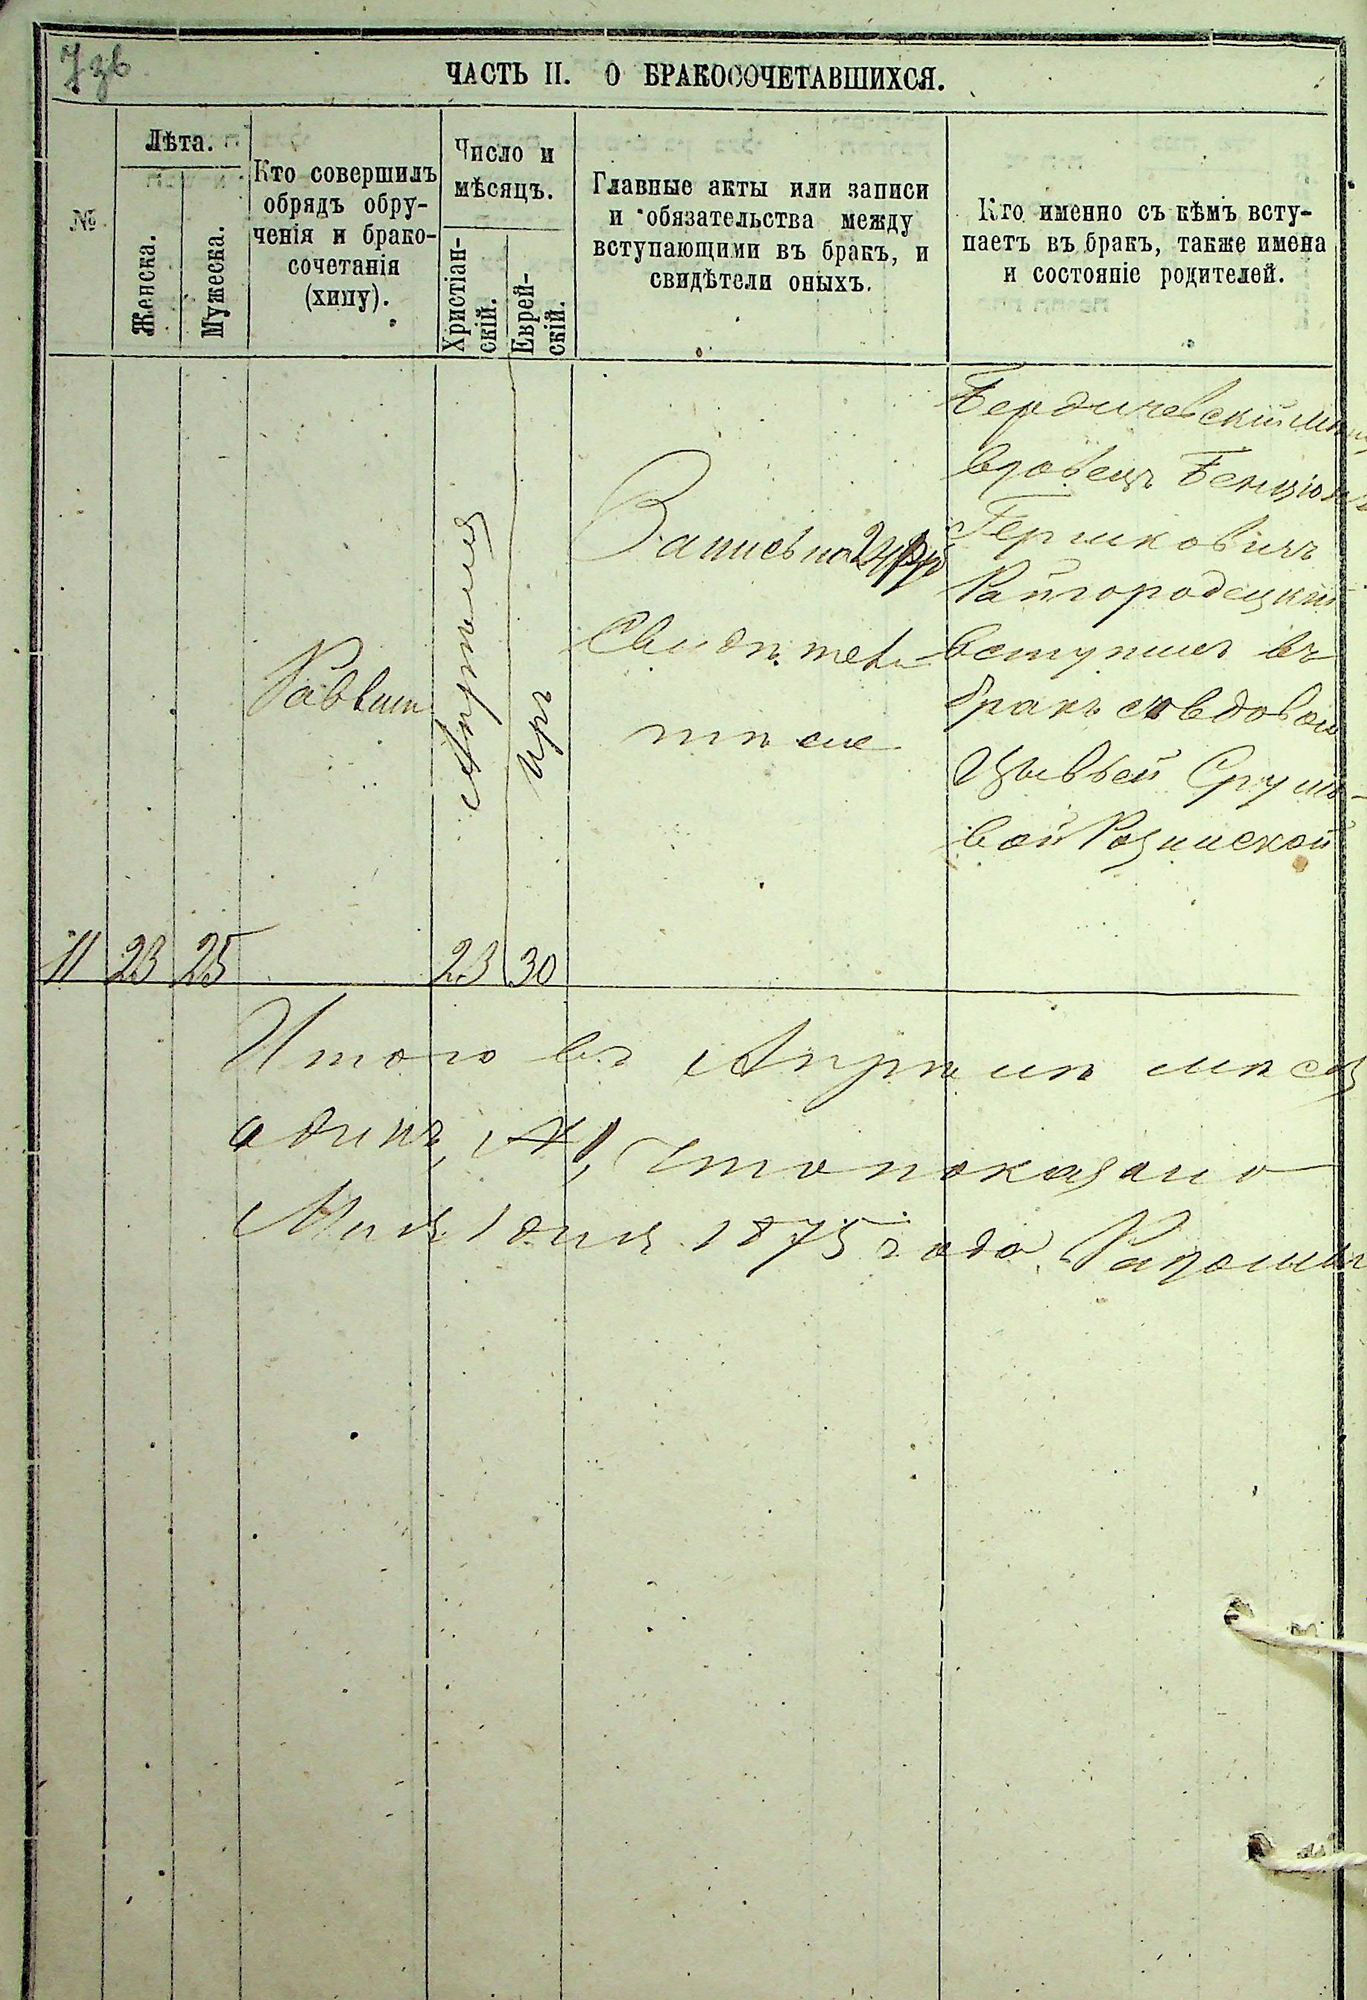 736
ЧАСТЬ II. О БРАКОСОЧЕТАВШИХСЯ.
№
Лѣта.
Женска.
Мужеска.
Кто совершилъ
обрядъ обру-
ченія и брако-
сочетанія
(хипу).
Число и
мѣсяцъ.
Христіан-
скій.
Еврей-
скій.
Главные акты или записи
и обязательства между
вступающими въ бракъ, и
свидѣтели оныхъ.
Кто именно съ кѣмъ всту-
паетъ въ бракъ, также имена
и состояніе родителей.
11
23
25
Раввин
Апрѣля
23
Иръ
30
Запись на
Свидѣтели
тѣ же
Бердичевскій мѣщ
вдовецъ Бенціонъ
Гершковичъ
Райгородецкій
вступилъ въ
бракъ со вдовой
Цывьей Сруле-
вой
Итого въ Апрѣлѣ мѣсяц
одинъ, №1, что показано
Мая 1 дня 1875 года.